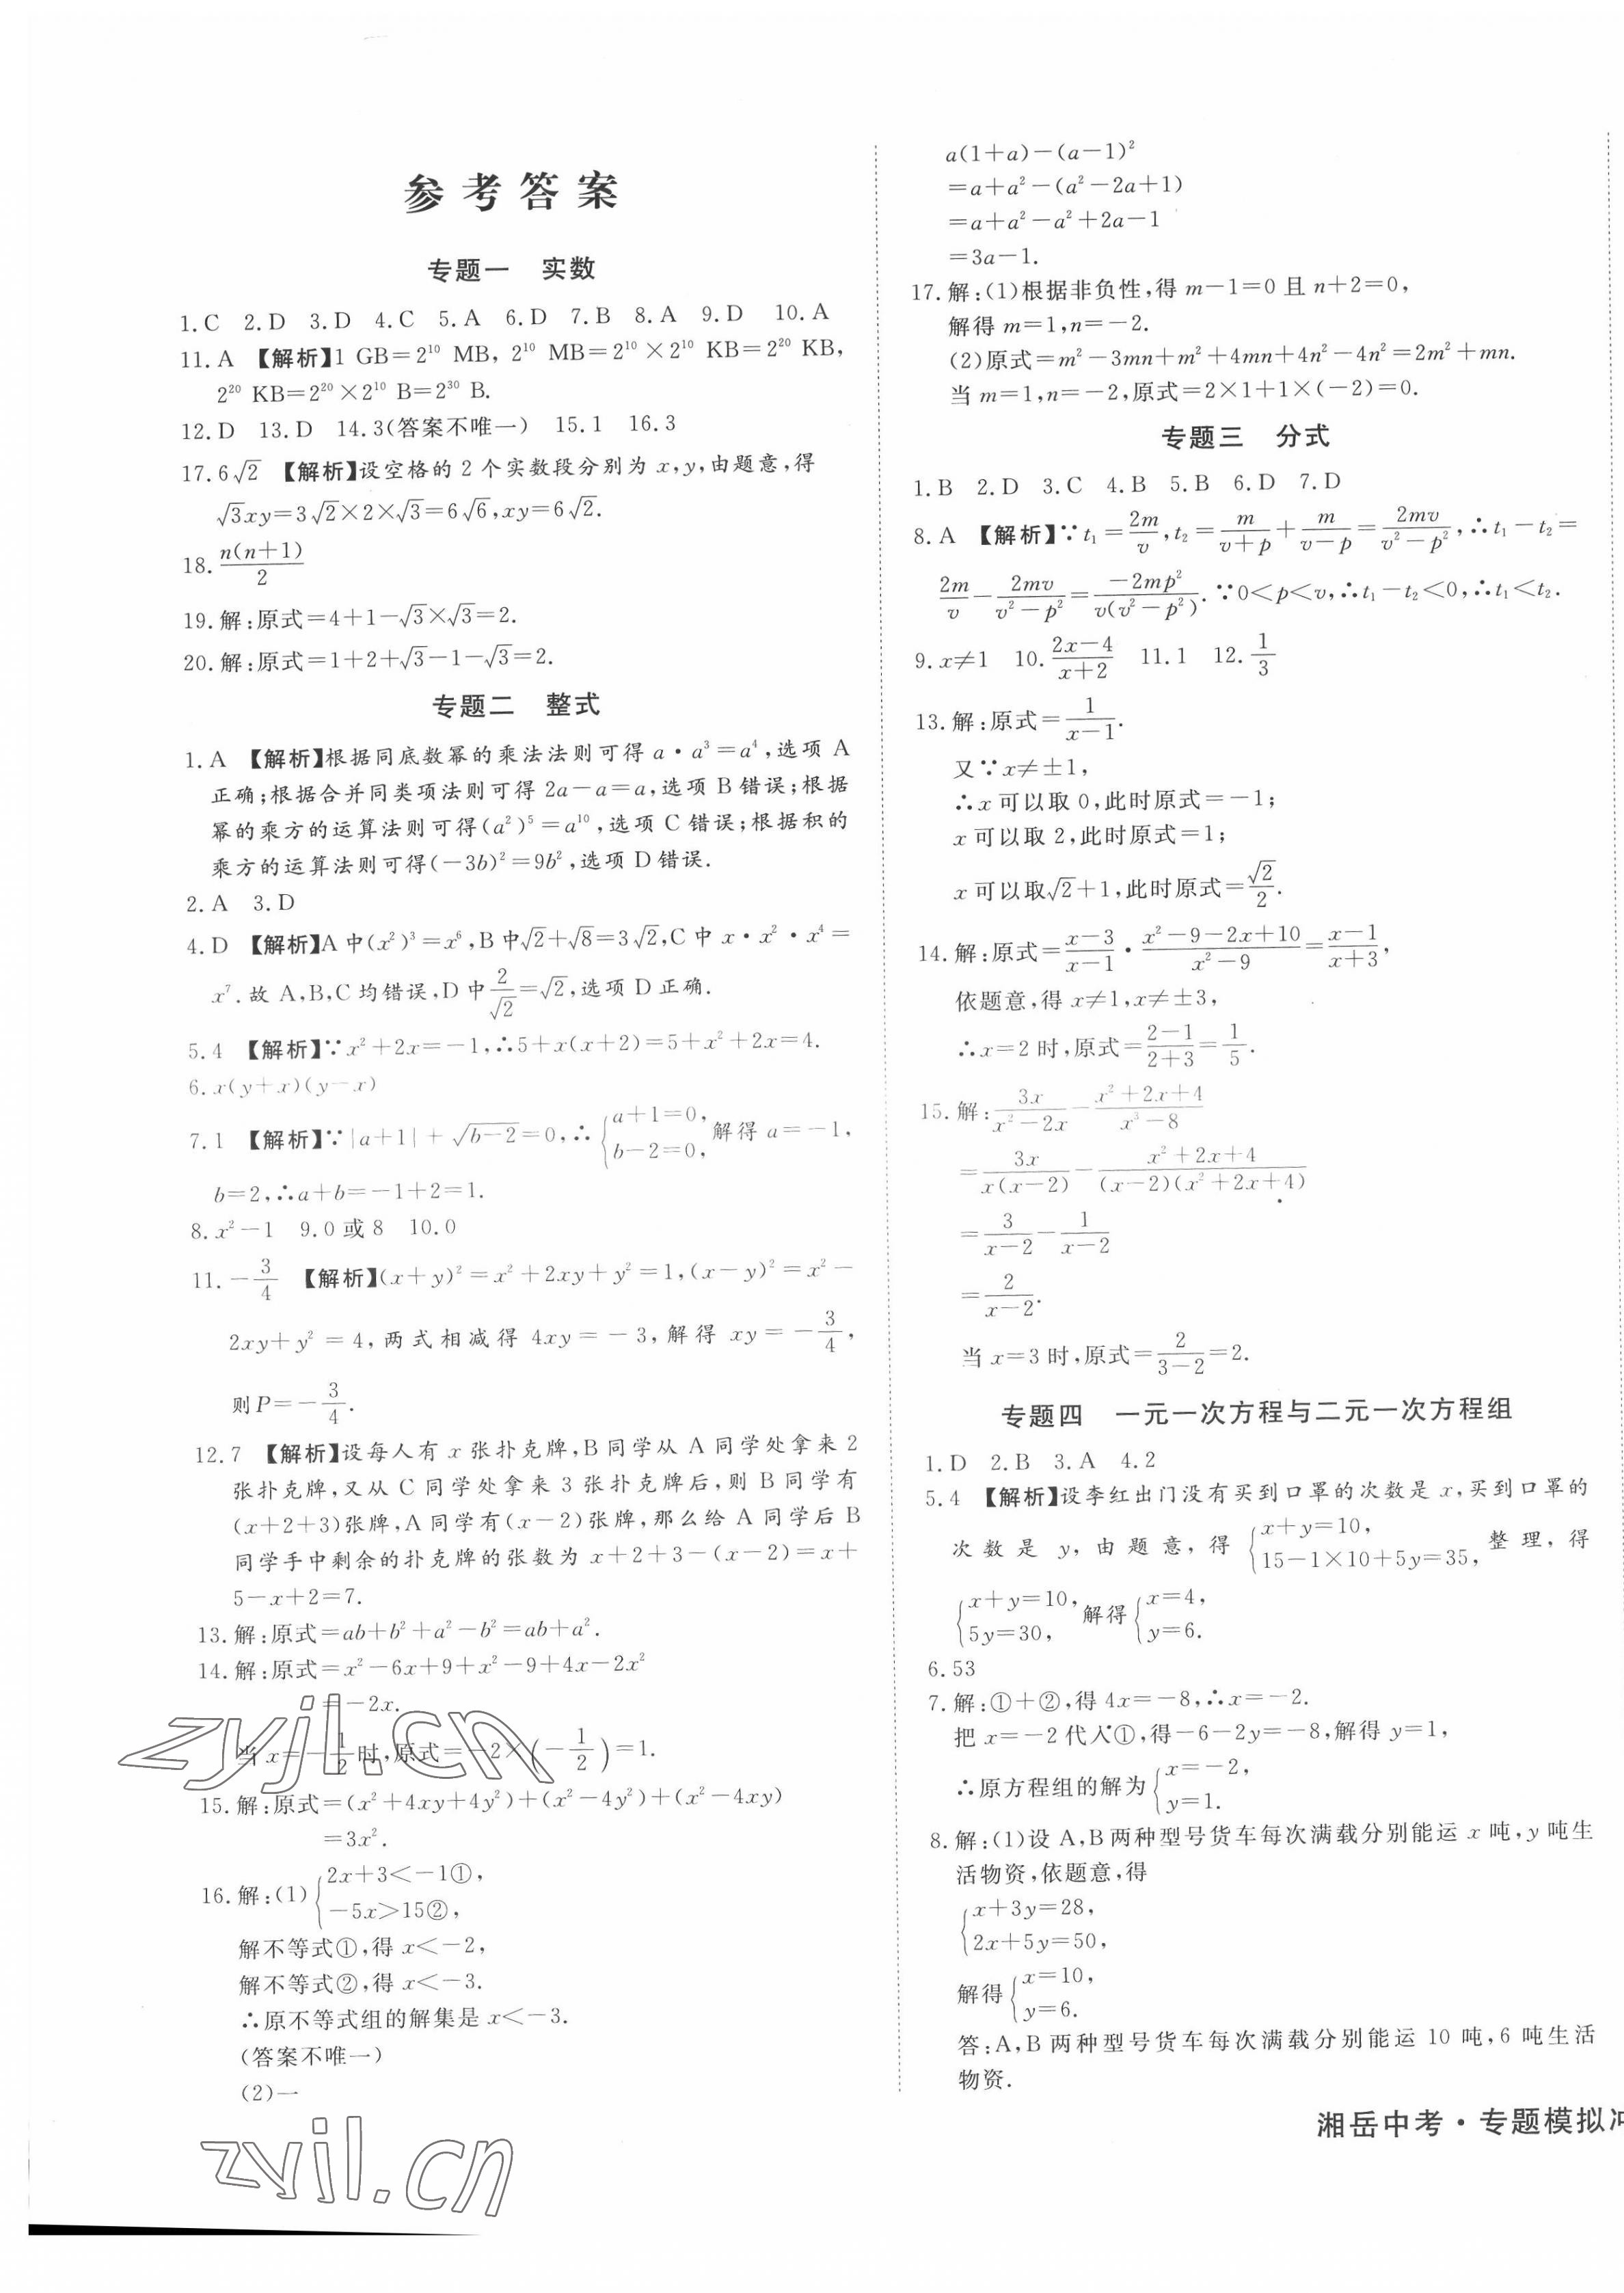 参考答案
专题一 实数
1.C 2.D 3.D 4.C 5.A 6.D 7.B 8.A 9.D 10.A
11.A 【解析】1 GB=2¹⁰ MB, 2¹⁰ MB=2¹⁰×2¹⁰ KB=2²⁰ KB,
2²⁰ KB=2²⁰×2¹⁰ B=2³⁰ B.
12.D 13.D 14.3(答案不唯一) 15.1 16.3
17.6√2 【解析】设空格的 2 个实数段分别为 x,y,由题意,得
√3xy=3√2×2×√3=6√6,xy=6√2.
18. n(n+1)/2
19.解:原式=4+1-√3×√3=2.
20.解:原式=1+2+√3-1-√3=2.
专题二 整式
1.A 【解析】根据同底数幂的乘法法则可得 a·a³=a⁴,选项 A
正确;根据合并同类项法则可得 2a-a=a,选项 B 错误;根据
幂的乘方的运算法则可得(a²)⁵=a¹⁰,选项 C 错误;根据积的
乘方的运算法则可得(-3b)²=9b²,选项 D 错误.
2.A 3.D
4.D 【解析】A 中(x²)³=x⁶,B 中√2+√8=3√2,C 中 x·x²·x⁴=
x⁷.故 A,B,C 均错误,D 中 2/√2=√2,选项 D 正确.
5.4 【解析】∵x²+2x=-1,∴5+x(x+2)=5+x²+2x=4.
6.x(y+x)(y-x)
7.1 【解析】∵|a+1|+√(b-2)=0,∴{a+1=0, b-2=0, 解得 a=-1,
b=2,∴a+b=-1+2=1.
8.x²-1 9.0 或 8 10.0
11.-3/4 【解析】(x+y)²=x²+2xy+y²=1,(x-y)²=x²-
2xy+y²=4,两式相减得 4xy=-3,解得 xy=-3/4,
则 P=-3/4.
12.7 【解析】设每人有 x 张扑克牌,B 同学从 A 同学处拿来 2
张扑克牌,又从 C 同学处拿来 3 张扑克牌后,则 B 同学有
(x+2+3)张牌,A 同学有(x-2)张牌,那么给 A 同学后 B
同学手中剩余的扑克牌的张数为 x+2+3-(x-2)=x+
5-x+2=7.
13.解:原式=ab+b²+a²-b²=ab+a².
14.解:原式=x²-6x+9+x²-9+4x-2x²
=-2x.
当 x=-1/2时,原式=-2×(-1/2)=1.
15.解:原式=(x²+4xy+4y²)+(x²-4y²)+(x²-4xy)
=3x².
16.解:(1){2x+3<-1①, -5x>15②,
解不等式①,得 x<-2,
解不等式②,得 x<-3.
∴原不等式组的解集是 x<-3.
(答案不唯一)
(2)一
a(1+a)-(a-1)²
=a+a²-(a²-2a+1)
=a+a²-a²+2a-1
=3a-1.
17.解:(1)根据非负性,得 m-1=0 且 n+2=0,
解得 m=1,n=-2.
(2)原式=m²-3mn+m²+4mn+4n²-4n²=2m²+mn.
当 m=1,n=-2,原式=2×1+1×(-2)=0.
专题三 分式
1.B 2.D 3.C 4.B 5.B 6.D 7.D
8.A 【解析】∵t₁=2m/v,t₂=m/(v+p)+m/(v-p)=2mv/(v²-p²),∴t₁-t₂=
2m/v-2mv/(v²-p²)=-2mp²/(v(v²-p²)).∵0<p<v,∴t₁-t₂<0,∴t₁<t₂.
9.x≠1 10.(2x-4)/(x+2) 11.1 12.1/3
13.解:原式=1/(x-1).
又∵x≠±1,
∴x 可以取 0,此时原式=-1;
x 可以取 2,此时原式=1;
x 可以取√2+1,此时原式=√2/2.
14.解:原式=(x-3)/(x-1)·(x²-9-2x+10)/(x²-9)=(x-1)/(x+3),
依题意,得 x≠1,x≠±3,
∴x=2 时,原式=(2-1)/(2+3)=1/5.
15.解:3x/(x²-2x)-(x²+2x+4)/(x³-8)
=3x/(x(x-2))-(x²+2x+4)/((x-2)(x²+2x+4))
=3/(x-2)-1/(x-2)
=2/(x-2).
当 x=3 时,原式=2/(3-2)=2.
专题四 一元一次方程与二元一次方程组
1.D 2.B 3.A 4.2
5.4 【解析】设李红出门没有买到口罩的次数是 x,买到口罩的
次数是 y,由题意,得{x+y=10, 15-1×10+5y=35, 整理,得
{x+y=10, 5y=30, 解得{x=4, y=6.
6.53
7.解:①+②,得 4x=-8,∴x=-2.
把 x=-2 代入①,得-6-2y=-8,解得 y=1,
∴原方程组的解为{x=-2, y=1.
8.解:(1)设 A,B 两种型号货车每次满载分别能运 x 吨,y 吨生
活物资,依题意,得
{x+3y=28, 2x+5y=50,
解得{x=10, y=6.
答:A,B 两种型号货车每次满载分别能运 10 吨,6 吨生活
物资.
湘岳中考·专题模拟冲
zyjl.cn
zyjl.cn